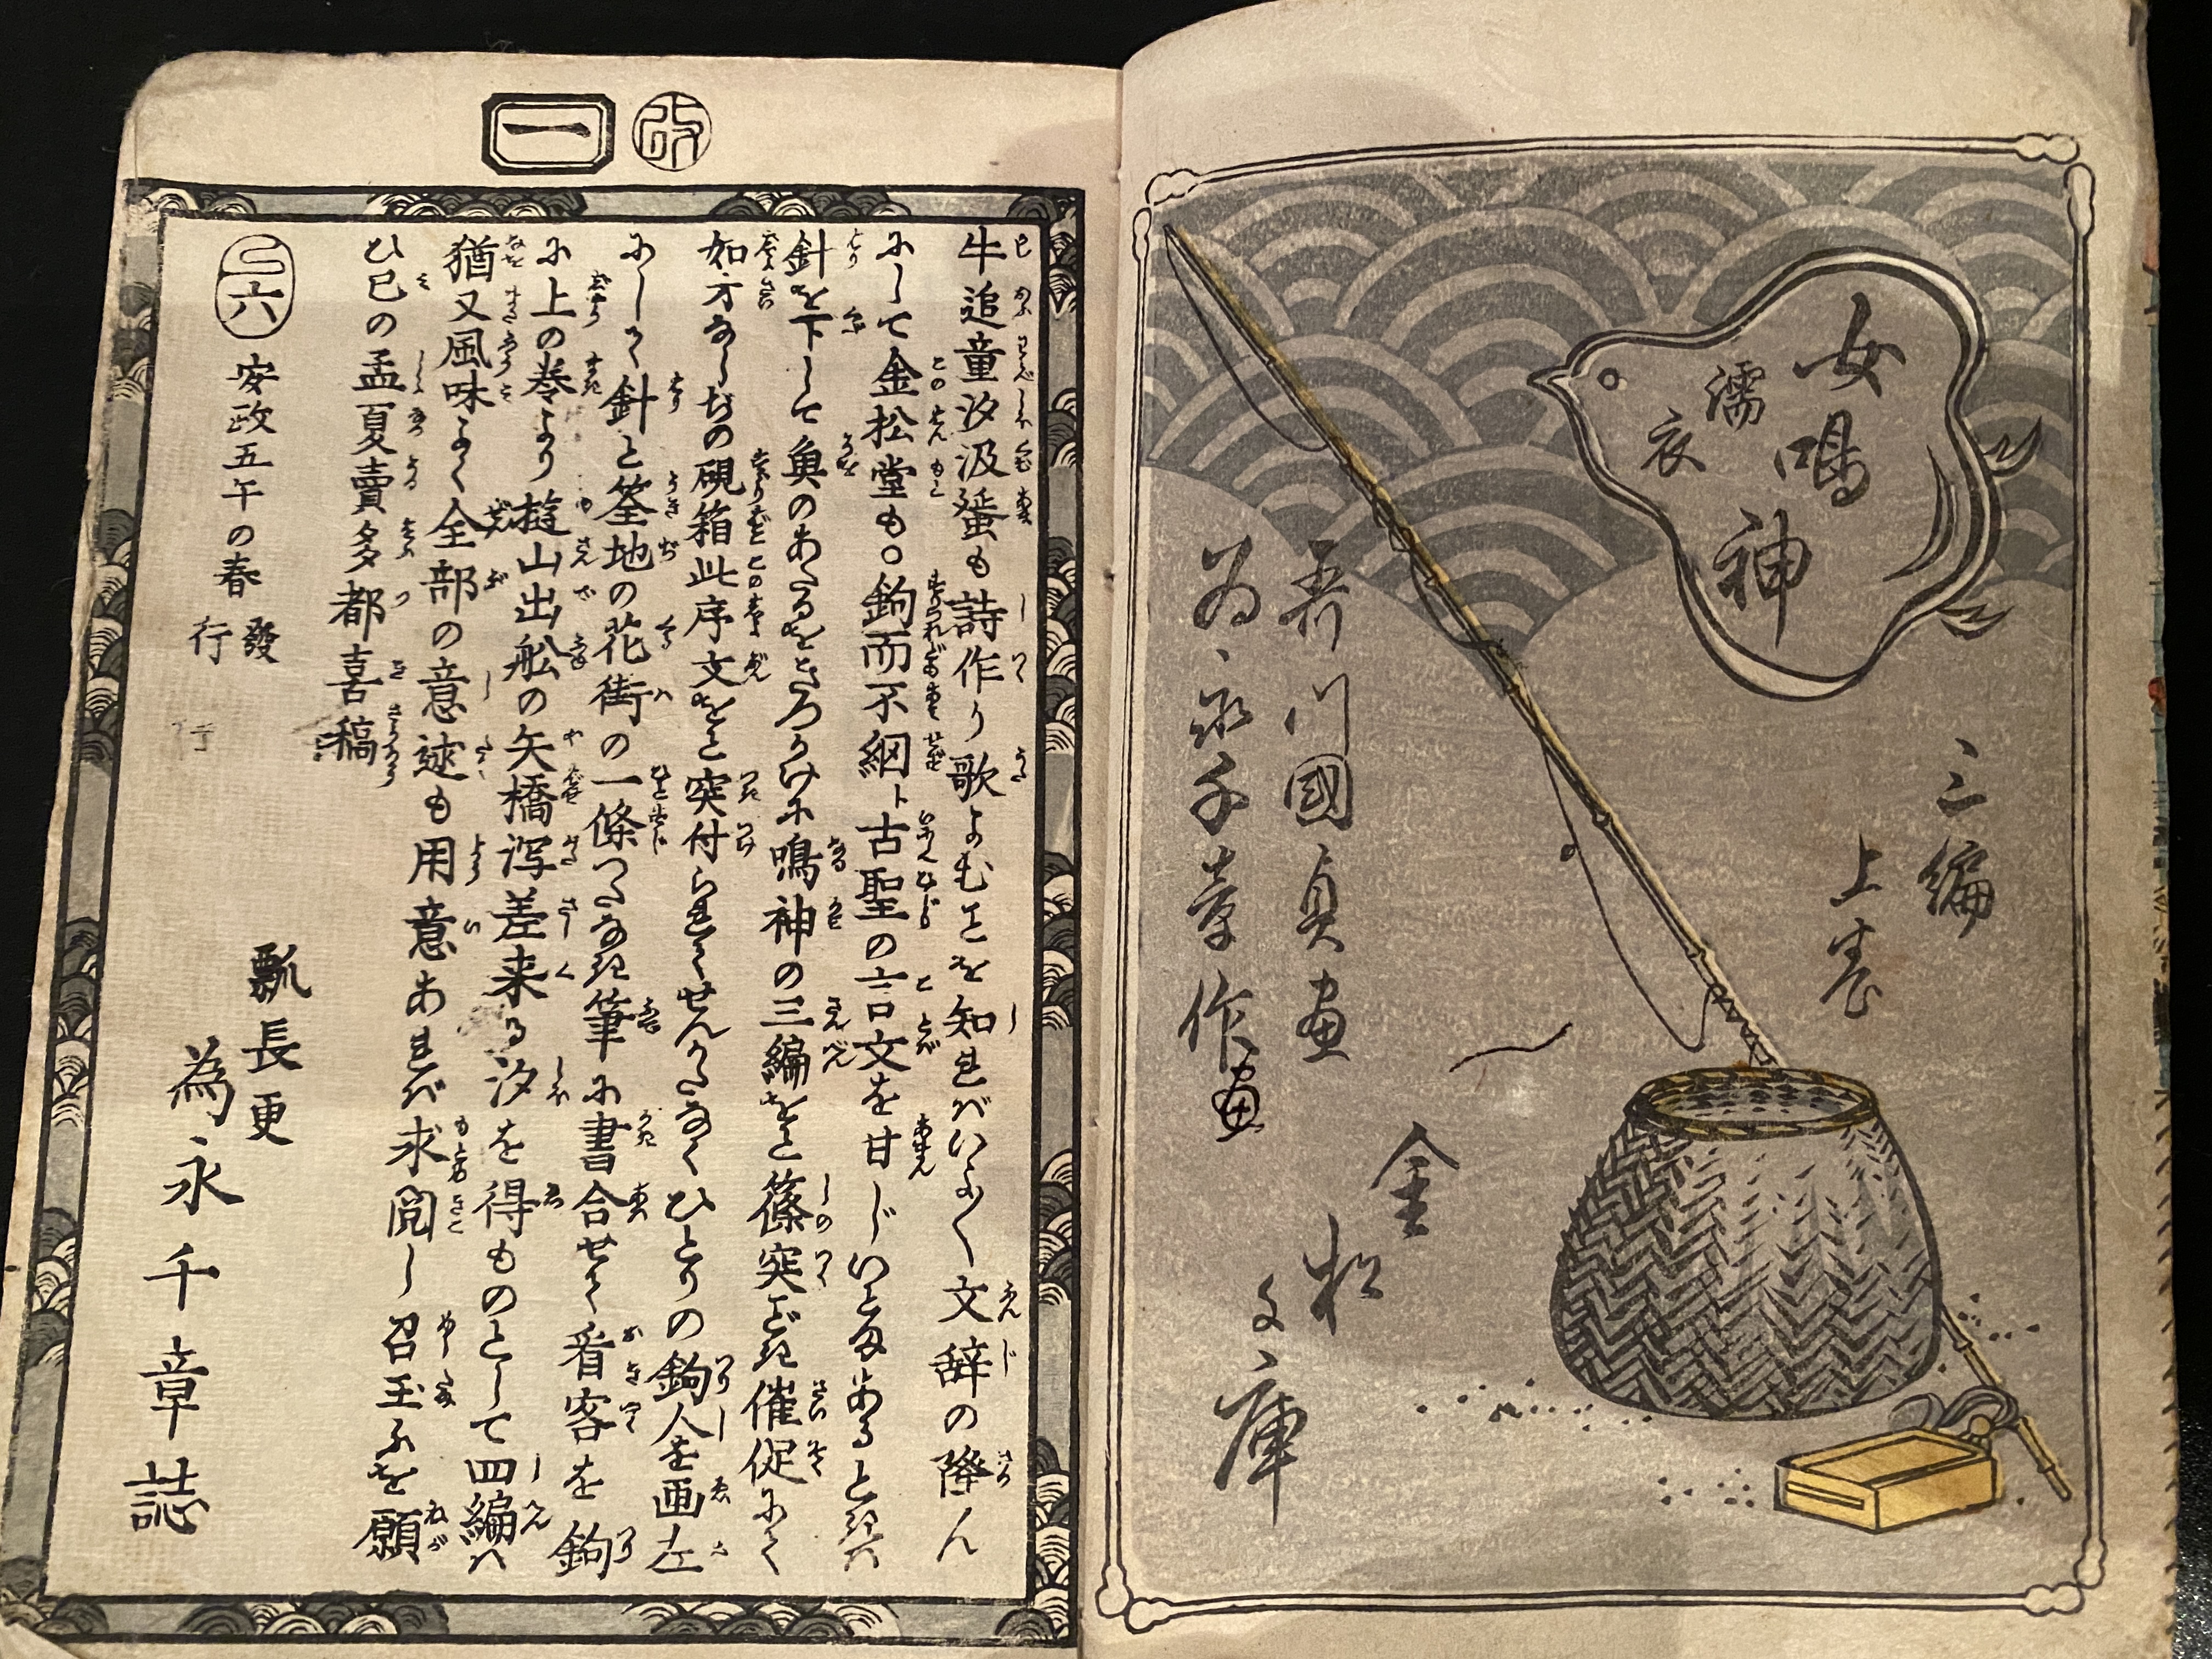 女鳴神
濡衣
三編
上巻
哥川國貞画
為永千蕚作
画
金松
文庫
改
一
牛追童汐汲蜑も詩作り歌よむことを知ればいよ〳〵文辞の降ん
にして金松堂も○鉤而不綱ト古聖の言文を甘じいとまあるときハ
針を下して魚のあるをところかけに鳴神の三編をと篠突ごとき催促にて
如才なしぢの硯箱此序文をと突付られてせんかたなくひとりの鉤人を画左
にして針と筌地の花街の一條つたなき筆に書合せて看客を鉤
に上の巻より遊山出舩の矢橋泻差来る汐を得ものとして四編ハ
猶又風味よく全部の意迹も用意あれバ求閲し召玉ふを願
ひ巳の孟夏賣多都喜稿
巳六
安政五午の春
發行
瓢長更
為永千章誌